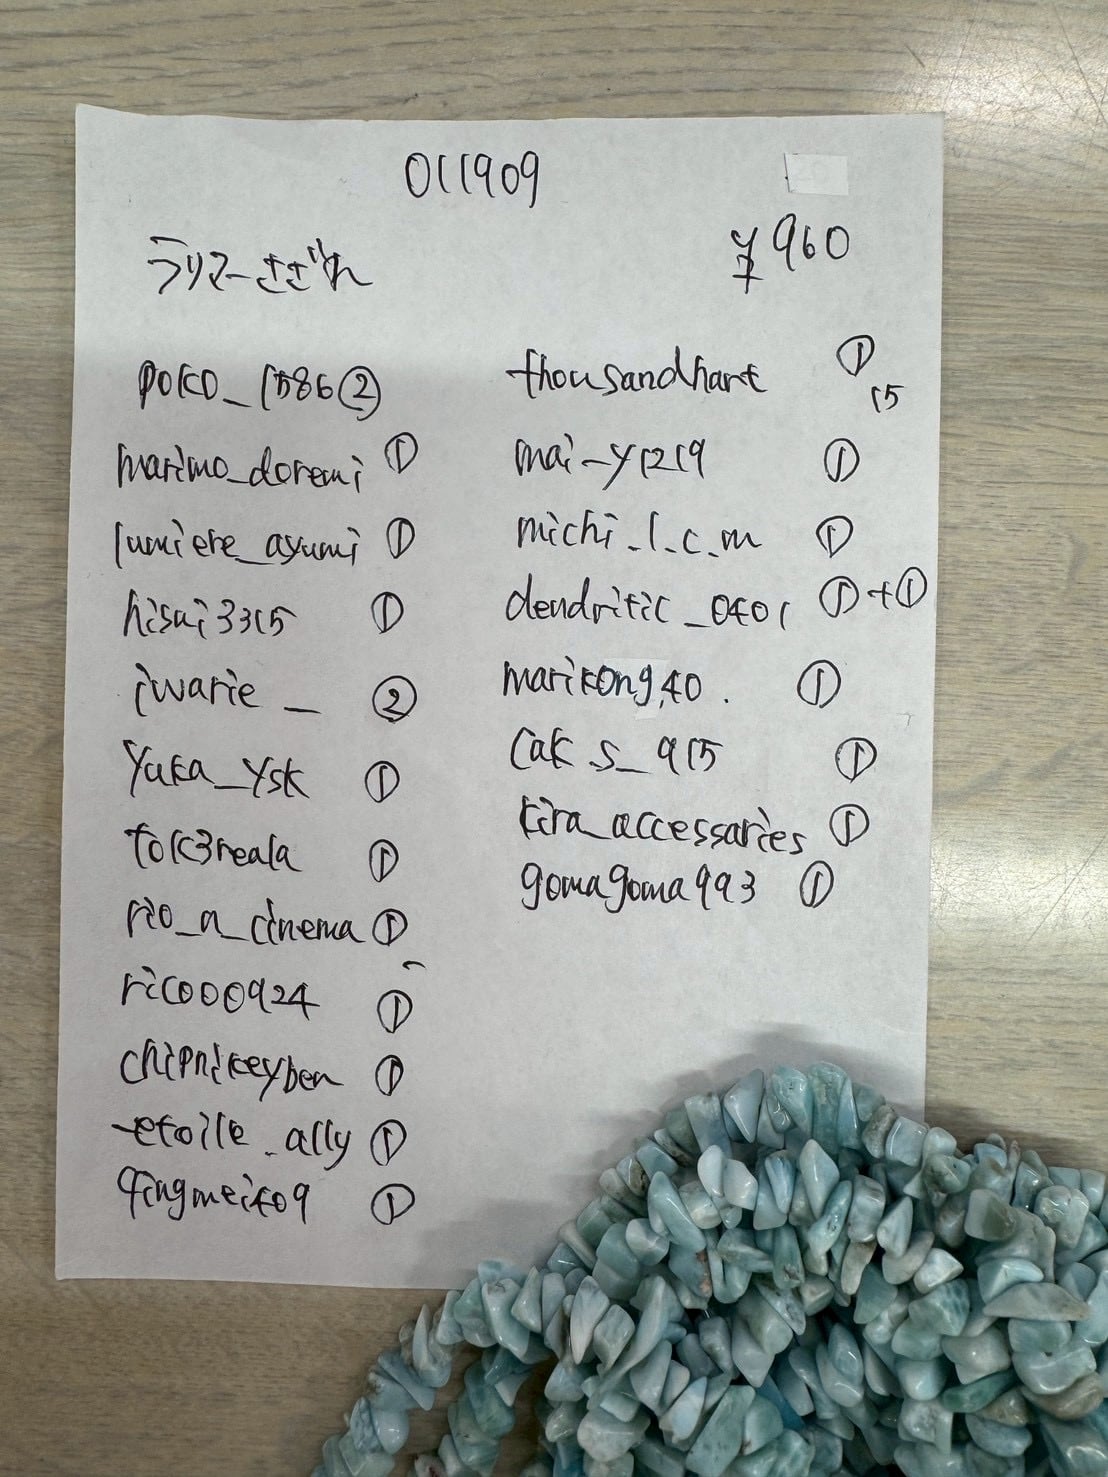 011909
¥960
ラリマーさざれ
poko_1586 ②
marimo_doremi ①
lumiere_ayumi ①
hisai3315 ①
iwarie_ ②
yuka_ysk ①
tok3reala ①
rio_a_cinema ①
rico00924 ①
chipnikeyben ①
etoile_ally ①
qingmeiko9 ①
thousandhart ①
15
mai-y1219 ①
michi.l.c.m ①
dendritic_0401 ①+①
marikong40. ①
cak.s_915 ①
kira_accessaries ①
gomagoma993 ①